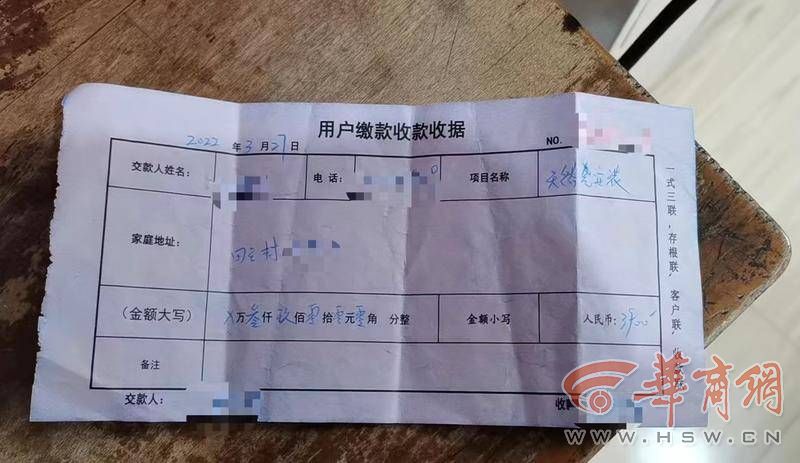 用户缴款收款收据
2022 年 3 月 27 日 NO.
交款人姓名: 电话: 0 项目名称 天然气安装
家庭地址: 田王村
(金额大写) X万叁仟玖佰零拾零元零角 分整 金额小写 人民币:
备注
交款人: 收
一式三联,存根联,客户联,收
華商網
WWW.HSW.CN